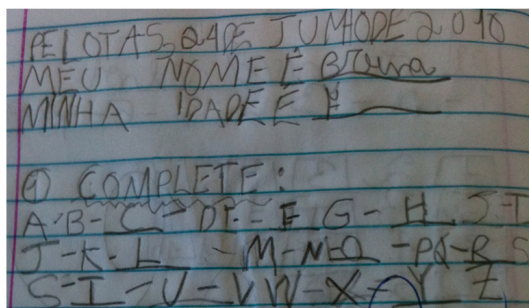 PELOTAS, 24 DE JUMIODE 2010
MEU NOME É Bruna
MINHA IDADE E
① COMPLETE:
A-B-C-DE-F G-H J-I
J-K-L-M-NEO-PQ-R S
S-T-U-V W-X-Y Z